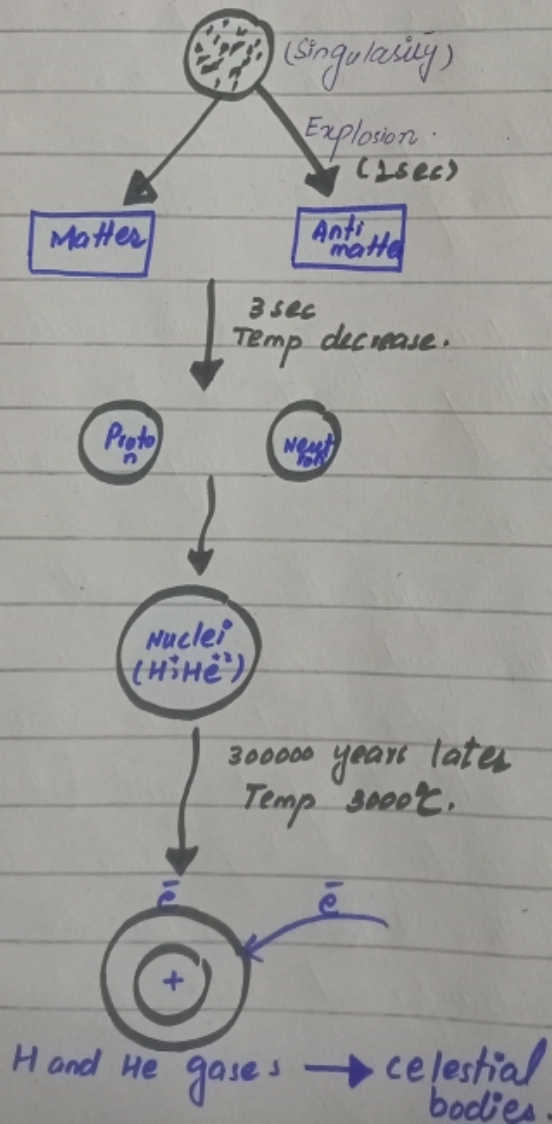 (Singularity)
Explosion.
(1sec)
Matter
Anti
matte
3 sec
Temp decrease.
Proto
n
Neut
ron
Nuclei
(H⁺;He⁺²)
300000 years later
Temp 3000℃.
e⁻
e⁻
+
H and He gases → celestial
bodies.